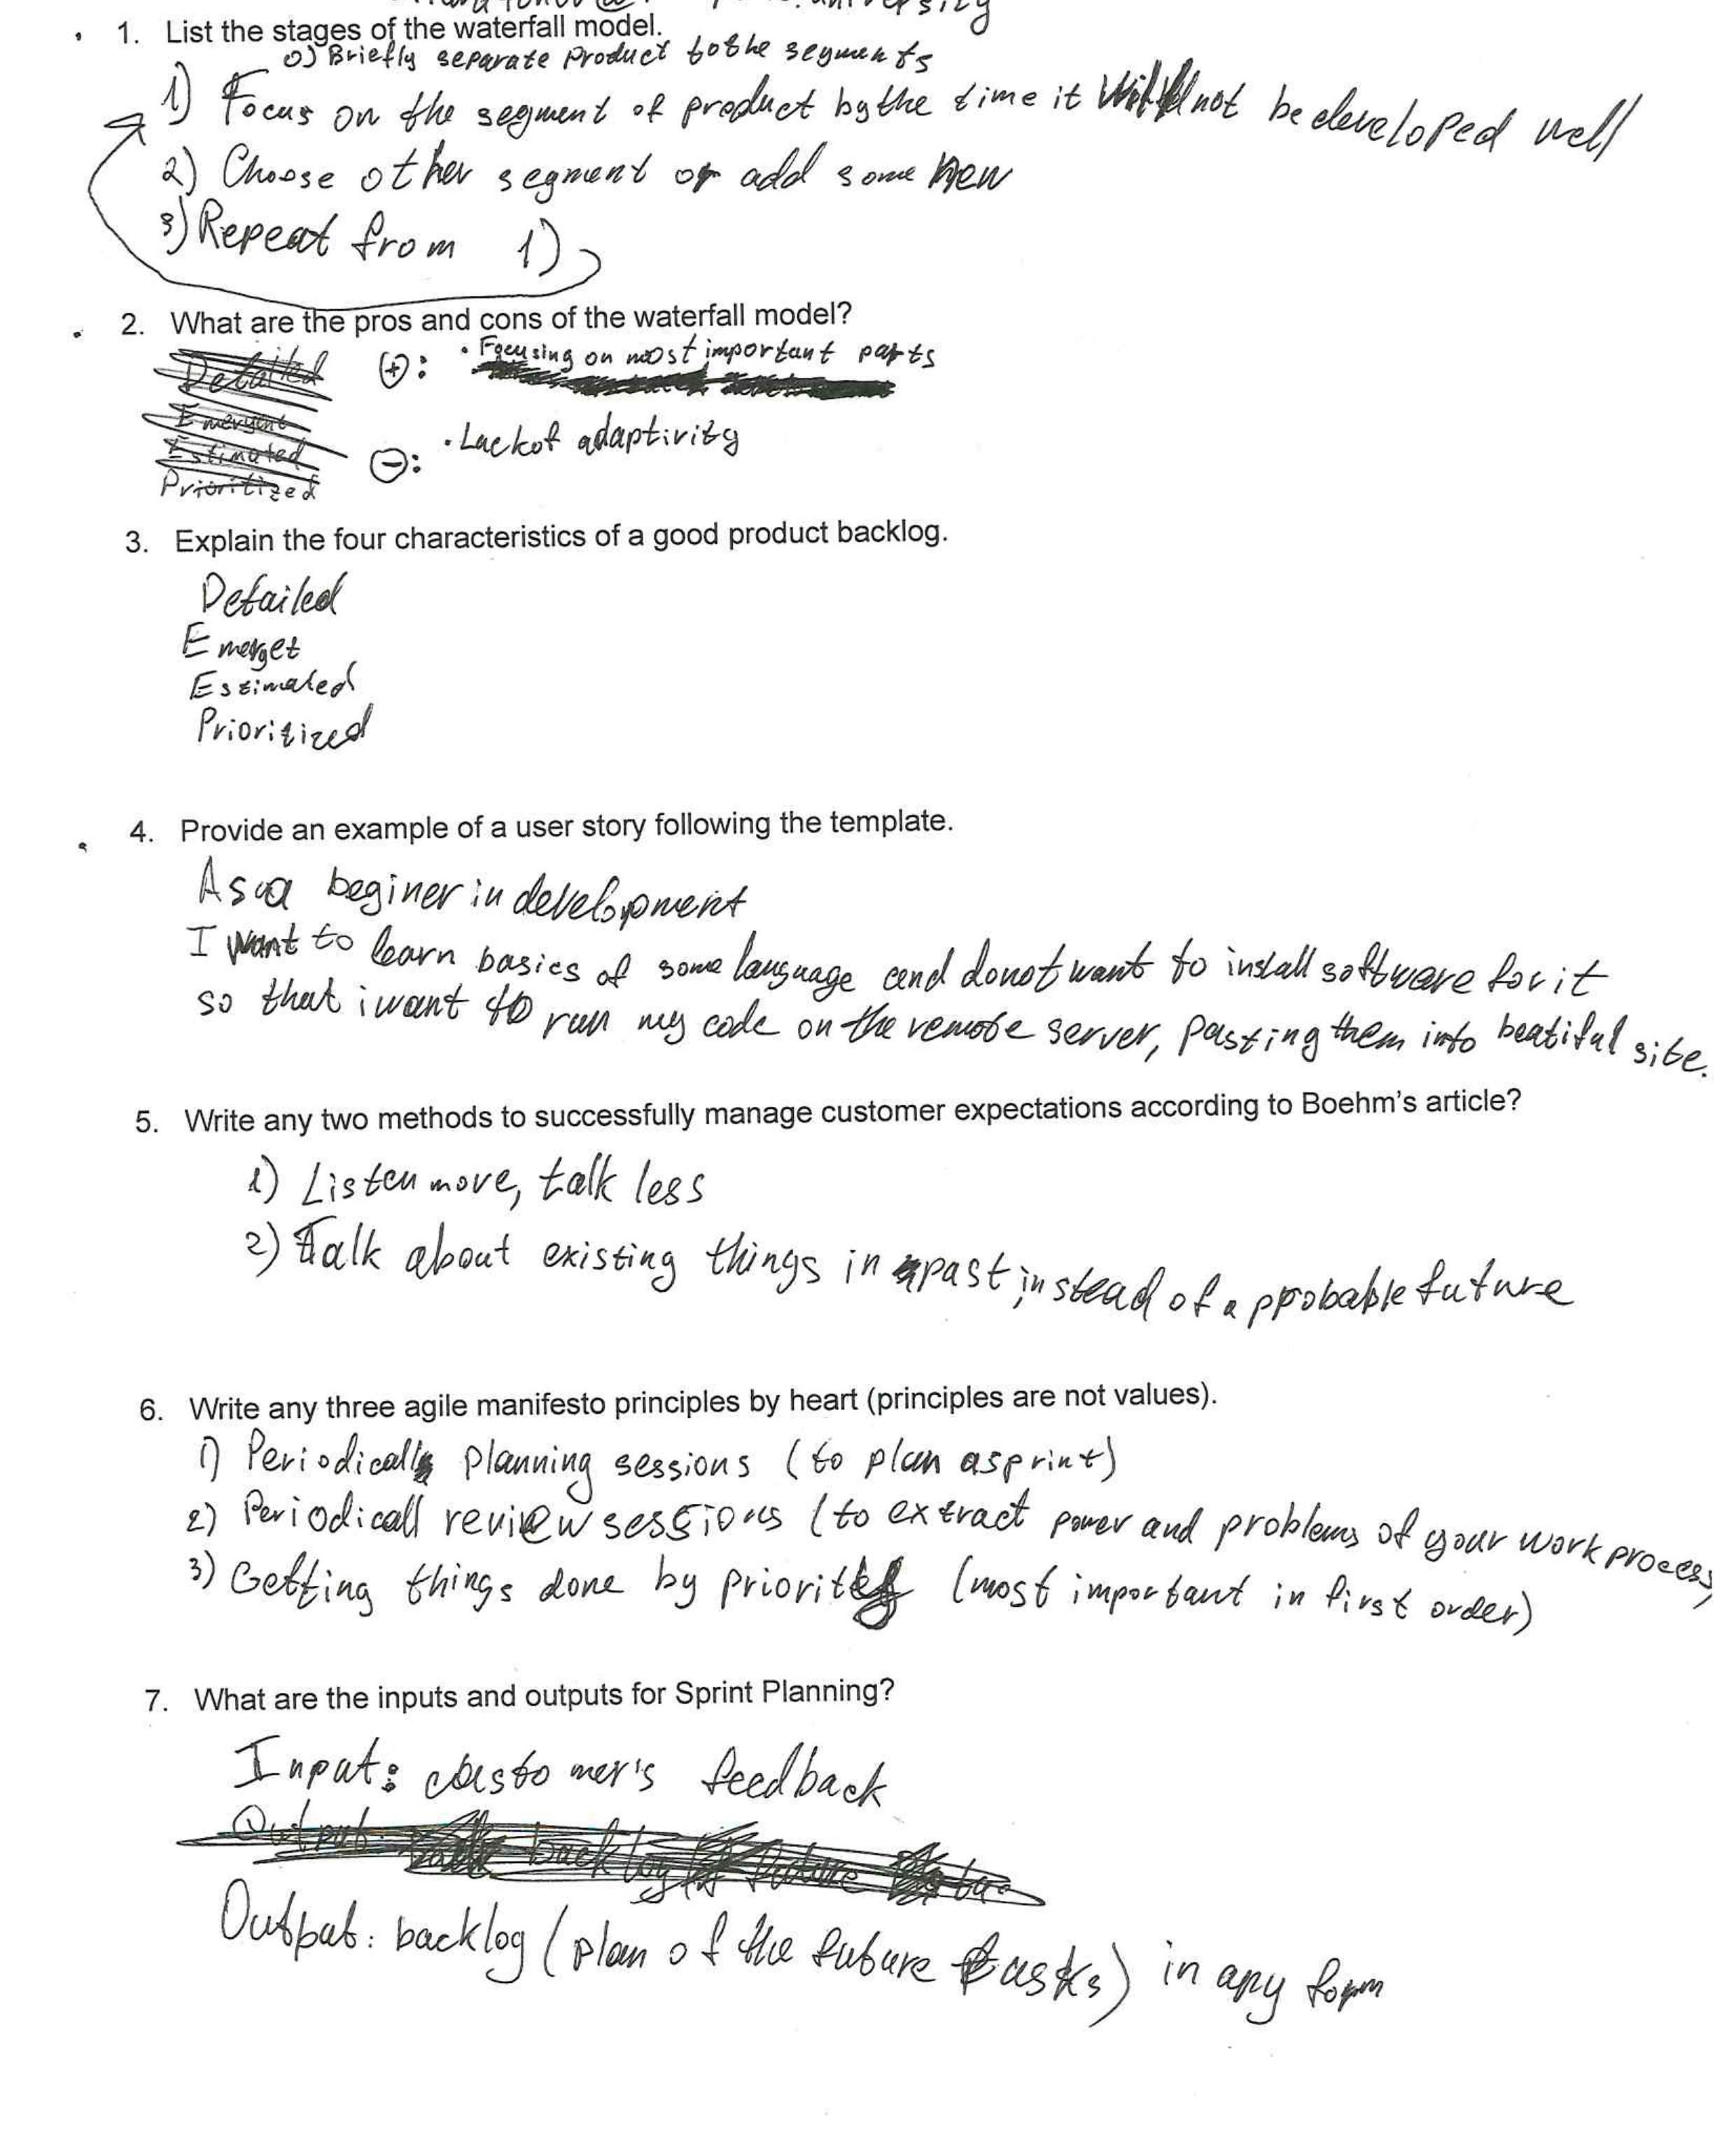 1. List the stages of the waterfall model.
0) Briefly separate product to the segments
1) Focus on the segment of product by the time it will not be developed well
2) Choose other segment or add some new
3) Repeat from 1)
2. What are the pros and cons of the waterfall model?
Detailed (+): • Focusing on most important parts
Emergent
Estimated (-): • Lack of adaptivity
Prioritized
3. Explain the four characteristics of a good product backlog.
Detailed
Emerget
Estimated
Prioritized
4. Provide an example of a user story following the template.
As a beginer in development
I want to learn basics of some language and do not want to install software for it
so that i want to run my code on the remote server, pasting them into beatiful site.
5. Write any two methods to successfully manage customer expectations according to Boehm's article?
1) Listen more, talk less
2) Talk about existing things in past, instead of a probable future
6. Write any three agile manifesto principles by heart (principles are not values).
1) Periodically planning sessions (to plan a sprint)
2) Periodicall review sessions (to extract power and problems of your work process)
3) Getting things done by priority (most important in first order)
7. What are the inputs and outputs for Sprint Planning?
Input: customer's feedback
Output: backlog (plan of the future tasks) in any form